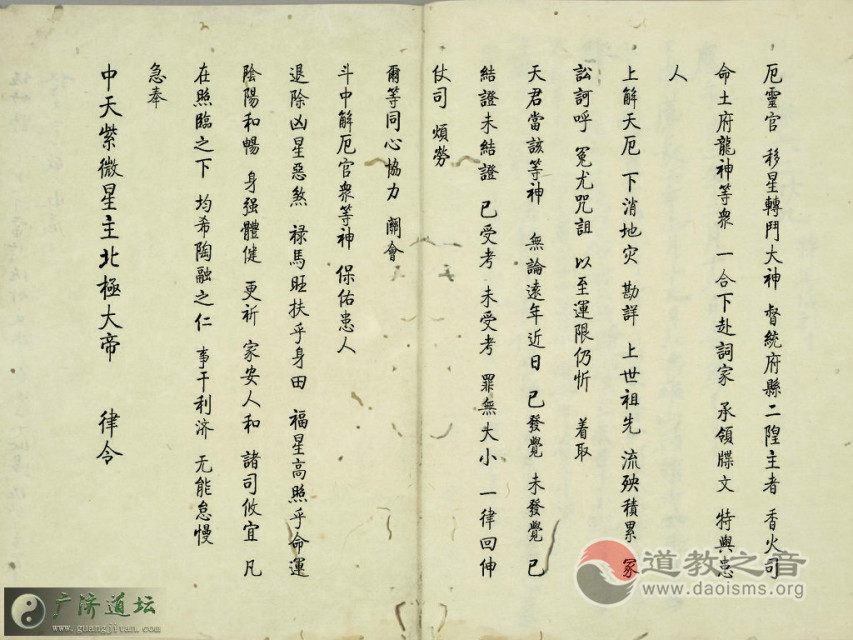 厄靈官 移星轉鬥大神 督統府縣二隍主者 香火司
命土府龍神等衆 一合下赴詞家 承領牒文 特與患
人
上解天厄 下消地灾 勘詳 上世祖先 流殃積累 冢
訟訶呼 冤尤咒詛 以至運限仍忻 着取
天君當該等神 無論遠年近日 已發覺 未發覺 已
結證未結證 已受考 未受考 罪無大小 一律回伸
仗司 煩勞
爾等同心協力 關會
斗中解厄官衆等神 保佑患人
退除凶星惡煞 禄馬旺扶乎身田 福星高照乎命運
陰陽和暢 身强體健 更祈 家安人和 諸司攸宜 凡
在照臨之下 均希陶融之仁 事干利济 无能怠慢
急奉
中天紫微星主北極大帝 律令
道教之音
www.daoisms.org
广济道坛
www.guangjitan.com